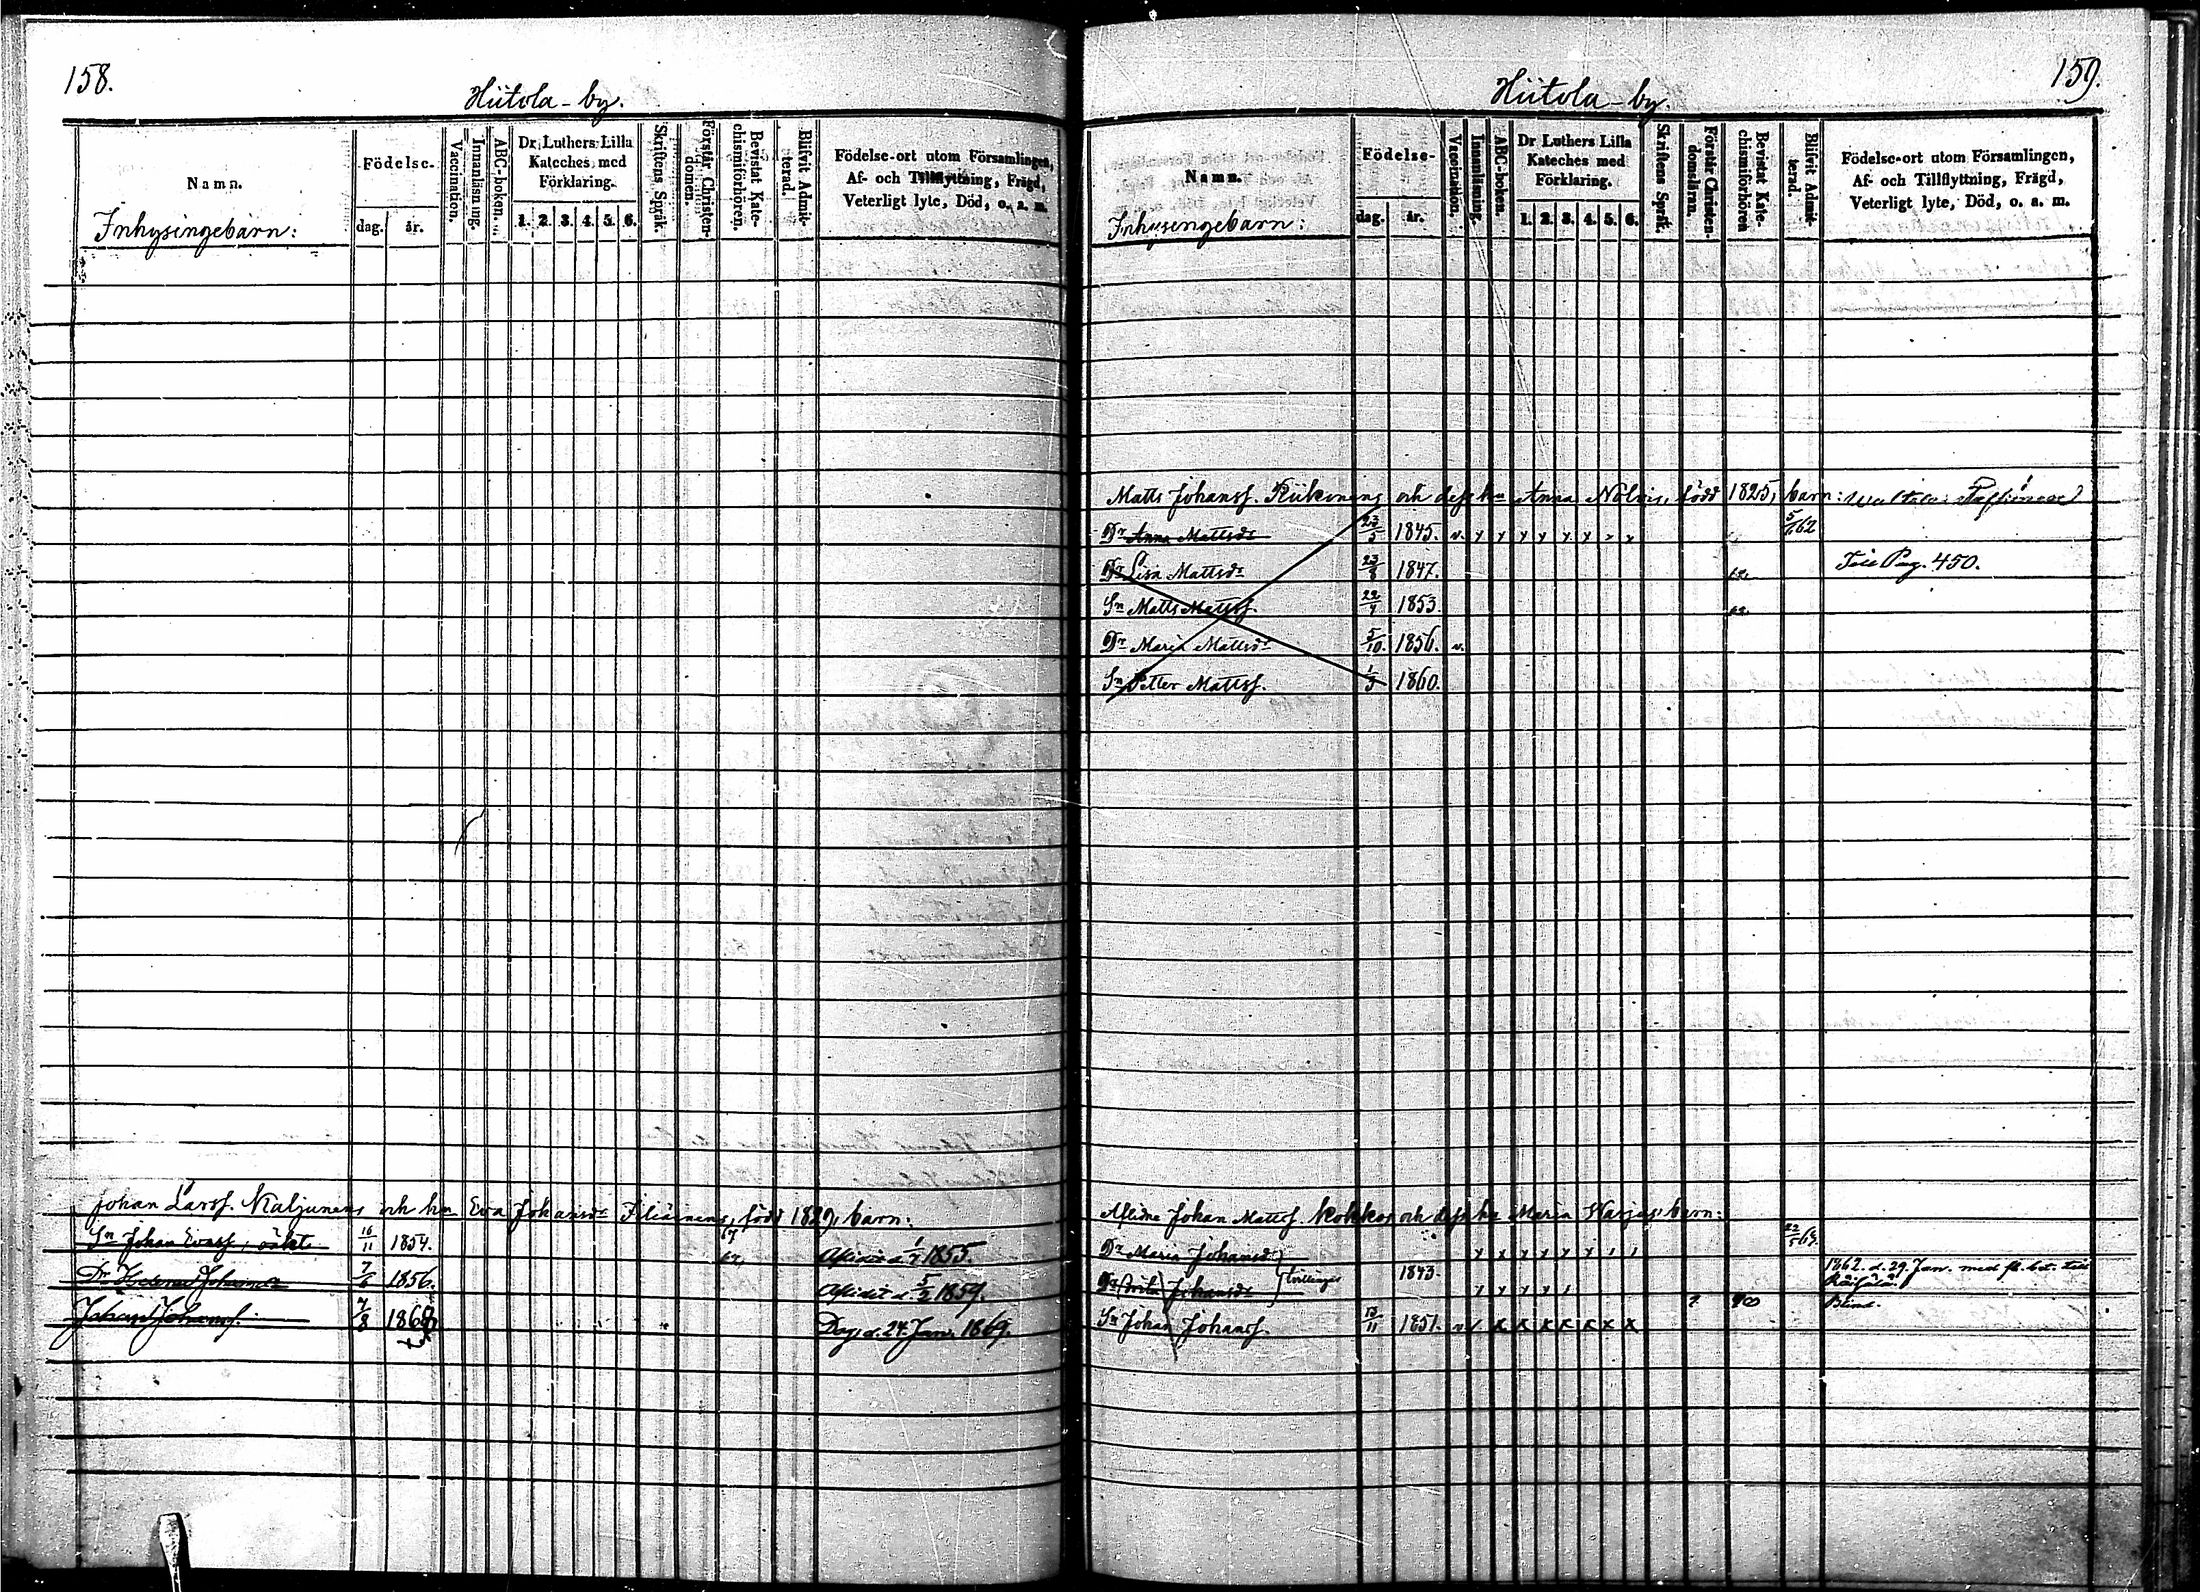 158.
Hiitola-by.
Namn.
Födelse-
dag.
år.
Vaccination.
Innanläsning.
ABC-boken.
Dr Luthers Lilla
Kateches med
Förklaring.
1. 2. 3. 4. 5. 6.
Skriftens Språk.
Förstår Christen-
domen.
Bevistat Kate-
chismiförhören.
Blifvit Admit-
terad.
Födelse-ort utom Församlingen,
Af- och Tillflyttning, Frägd,
Veterligt lyte, Död, o. a. m.
Inhysingebarn:
Johan Larsf. och hu Eva Johansdr född 1829, barn:
Sn Johan Evasf, oäkt 16/11 1854. Afledit d. 1855.
Dr 7/6 1856. Afledit d. 5/2 1859.
Johan Johansf. 7/8 1868 Dog. d. 24. Jan. 1869.
159.
Hiitola-by.
Namn.
Födelse-
dag.
år.
Vaccination.
Innanläsning.
ABC-boken.
Dr Luthers Lilla
Kateches med
Förklaring.
1. 2. 3. 4. 5. 6.
Skriftens Språk.
Förstår Christen-
domsläran.
Bevistat Kate-
chismiförhören
Blifvit Admit-
terad.
Födelse-ort utom Församlingen,
Af- och Tillflyttning, Frägd,
Veterligt lyte, Död, o. a. m.
Inhysingebarn:
Matts Johansf. och dess hu Anna född 1825, barn:
Dr Anna Mattsdr 23/5 1845. v. 5/ 62
Dr Lisa Mattsdr 23/8 1847. Pag. 450.
Sn Matts Mattsf. 22/4 1853.
Dr Maria Mattsdr 5/10. 1856. v.
Sn Petter Mattsf. 1/3 1860.
Aflidne Johan Mattsf. Kokkos och dess hu Maria barn:
Dr Maria Johansdr tvillingar 22/5 64.
Dr Johansdr 1843. 1862. d. 29. Jan. med fl. bet. till
Räisälä.
Sn Johan Johansf. 13/11 1851. Blind.